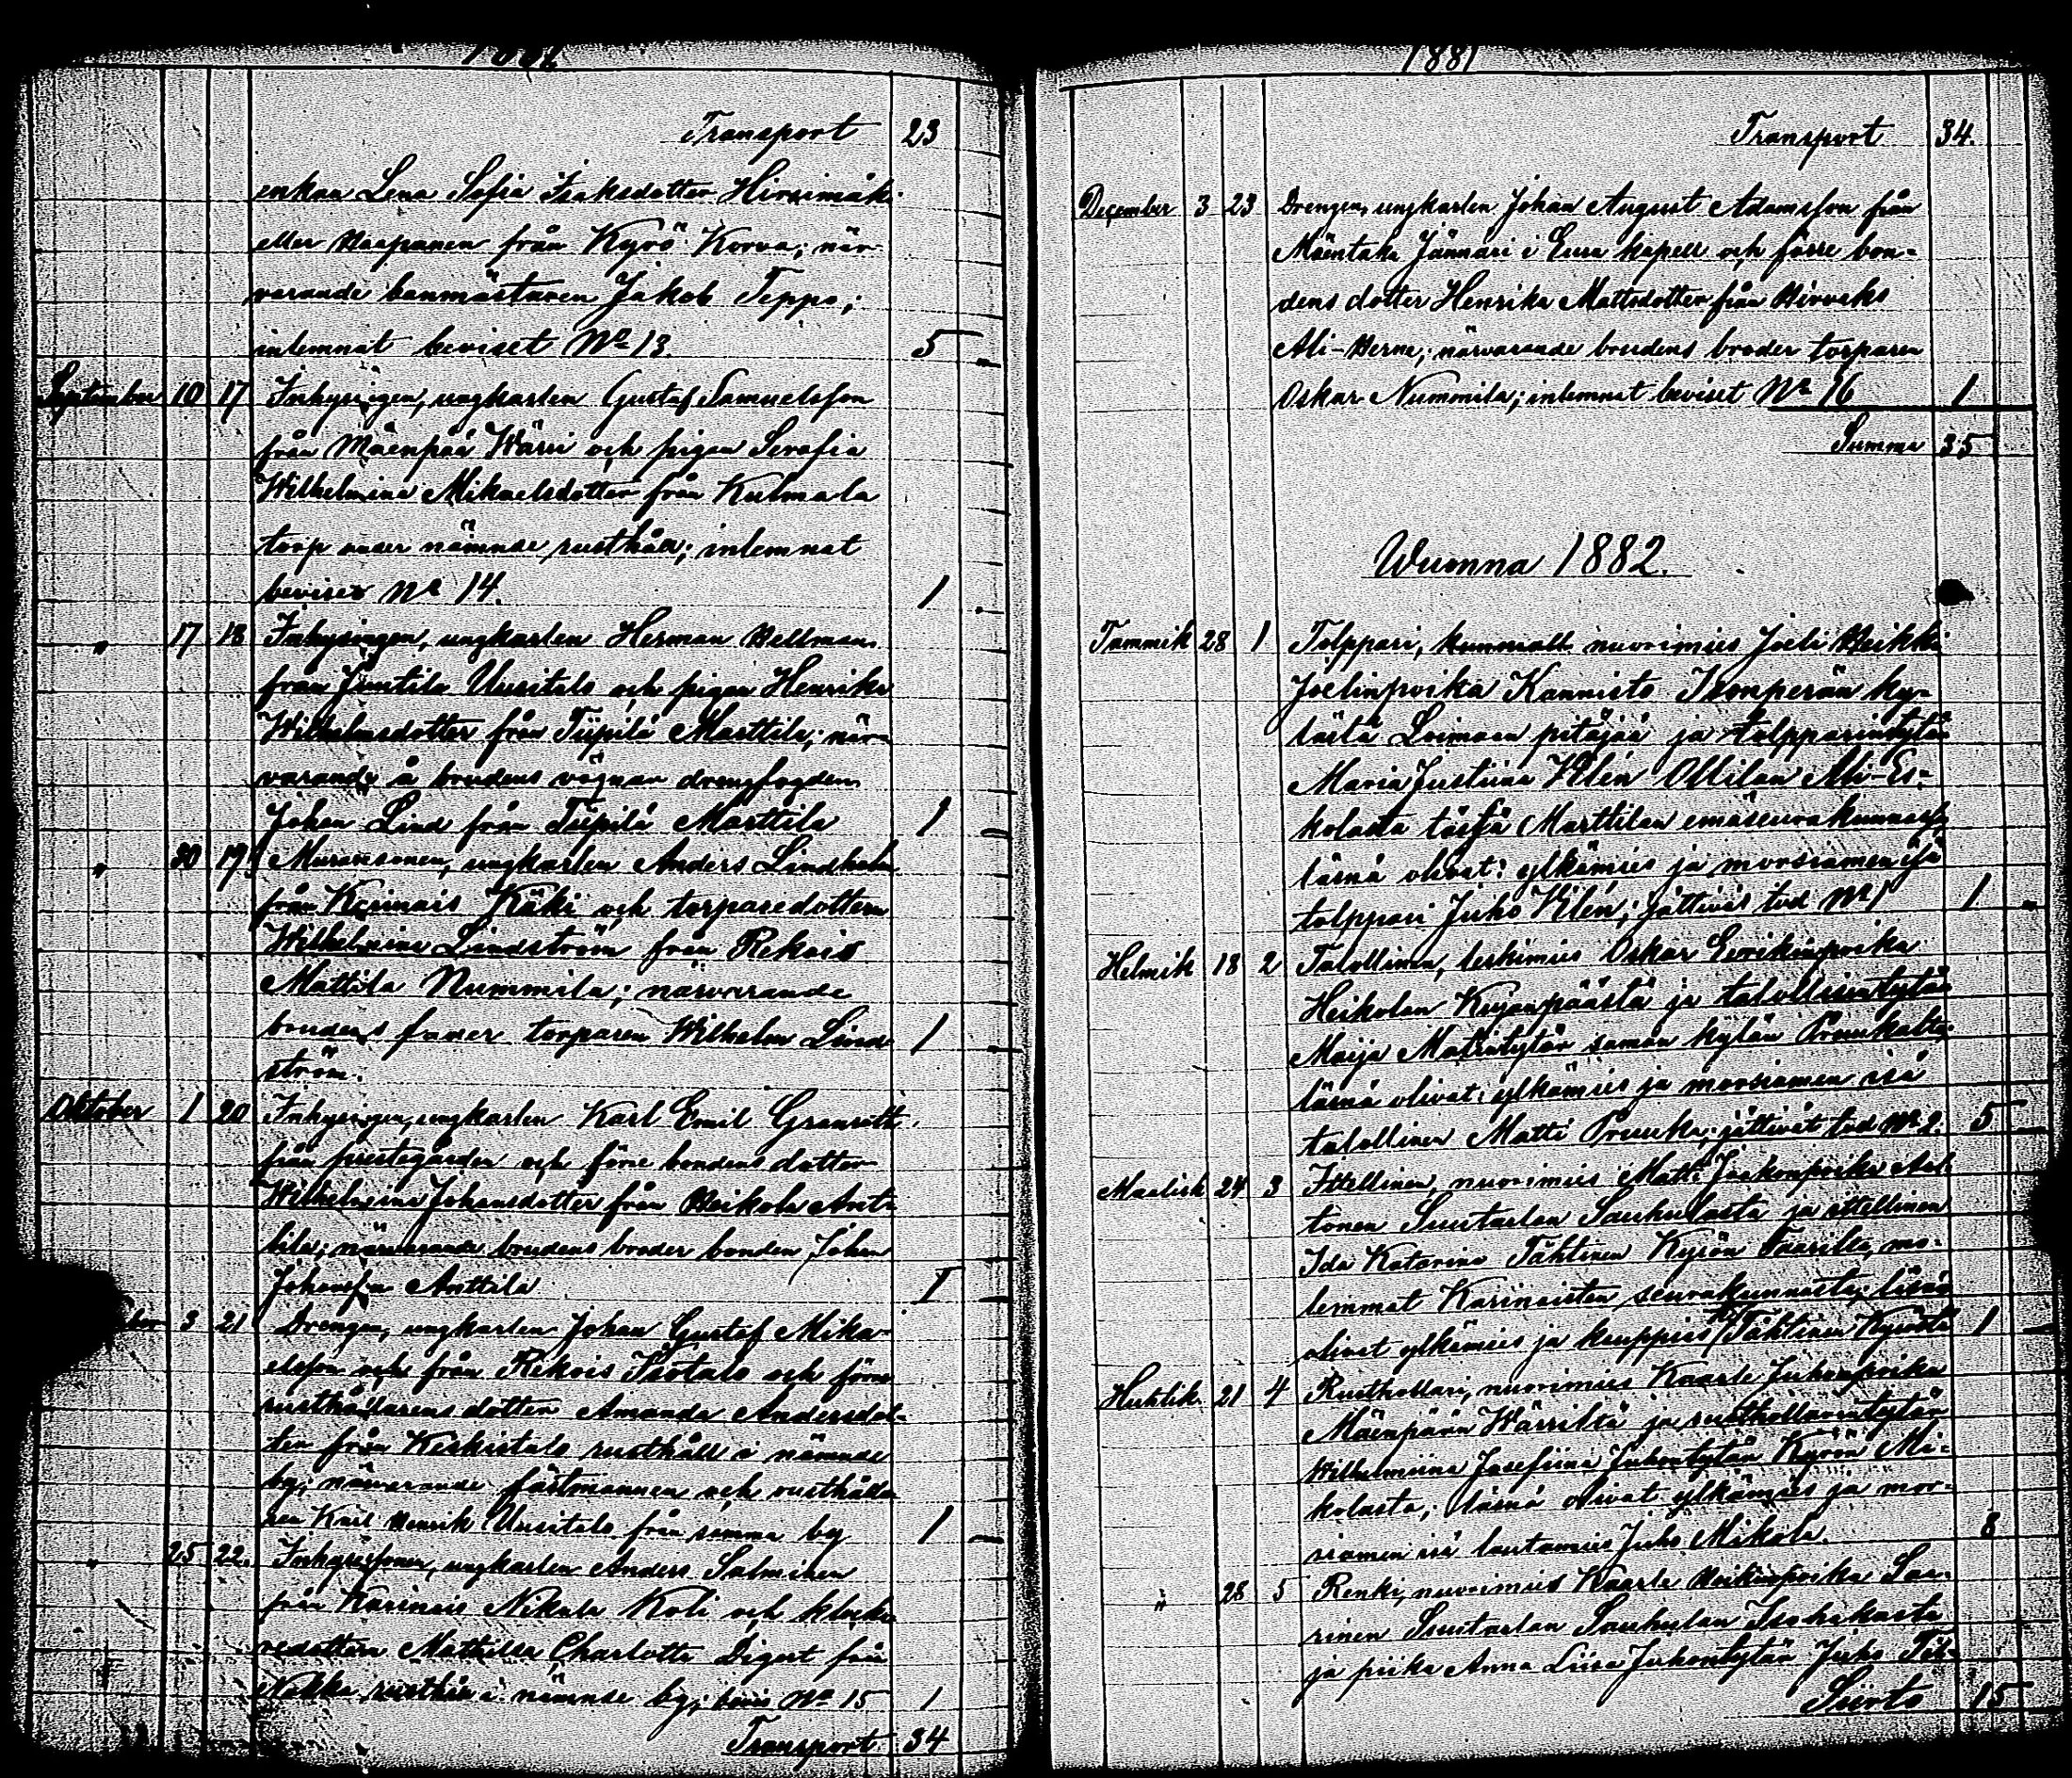 1881
Transport 23
enkan Lena Sofia Isaksdotter Hirsimäki
eller Haapanen från Kyrö Korva; när-
varande banmästaren Jakob Teppo;
inlemnat beviset No 13. 5
September 10 17 Inhysingen, ungkarlen Gustaf Samuelsson
från Mäenpää Wärri och pigan Serafia
Wilhelmina Mikaelsdotter från Kulmala
torp under nämnde rusthåll; inlemnat
beviset No 14. 1
" 17 18 Inhysingen, ungkarlen Herman Hellman
från Juntila Uusitalo och pigan Henrika
Wilhelmsdotter från Tiipilä Marttila; när-
varande å brudens vägnar drengfogden
Johan Lind från Tiipilä Marttila 1
" 30 19 ungkarlen Anders Lindholm
från Karinais Käki och torparedottern
Wilhelmina Lindström från Rekois
Mattila Nummila; närvarande
brudens fader torparen Wilhelm Lind- 1
ström.
Oktober 1 20 Inhysingen, ungkarlen Karl Emil Granroth
från prestegården och förre bondens dotter
Wilhelmina Johansdotter från Heikola Ant-
tila; närvarande brudens broder bonden Johan
Johansson Anttila 1
3 21 Drengen, ungkarlen Johan Gustaf Mika-
elsson och från Rekois Isotalo och förre
rusthållarens dotter Amanda Andersdot-
ter från Keskitalo rusthåll i nämnde
by; närvarande fästmannen och rusthålla-
ren Karl Henrik Uusitalo från samma by 1
" 25 22. ungkarlen Anders Salminen
från Karinais Nikula Koli och klocka-
redottern Mathilda Charlotta Digert från
rusthåll i nämnde by; bevis No 15 1
Transport 34
1881
Transport 34.
December 3 23 Drengen, ungkarlen Johan August Adamsson från
Mäentaka Jännäri i Eura kapell och förre bon-
dens dotter Henrika Mattsdotter från Hirvoks
Ali-Herne; närvarande brudens broder torparen
Oskar Nummila; inlemnat beviset No 16 1
Summa 35
Wuonna 1882.
Tammik 28 1 Tolppari, nuorimies Joeli Heikki
Joelinpoika Kannisto Isonperän ky-
lästä Loimaan pitäjää ja tolpparintytär
Maria Justiina Vilén Ollilan Ali-Es-
kolasta tässä Marttilan emäseurakunnassa
läsnä olivat: ylkämies ja morsiamen isä
tolppari Juho Vilén; jättivät tod No 1 1
Helmik 18 2 Talollinen, leskimies Oskar Eerikinpoika
Heikolan Kujanpäästä ja talollisentytär
Maija Matintytär saman kylän Prunkalta;
läsnä olivat: ylkämies ja morsiamen isä
talollinen Matti Prunka; jättivät tod No 2. 5
Maalisk 24 3 Itsellinen, nuorimies Matti Jaakonpoika Aal-
tonen Suutarlan Sauhulasta ja itsellinen
Ida Katarina Tähtinen Kyrön Taarilta, mo-
lemmat Karinaisten seurakunnasta; läsnä
olivat ylkämies ja kauppias Tähtinen Kyröstä 1
Huhtik. 21 4 Rusthollari, nuorimies Kaarle Juhonpoika
Mäenpään Wärriltä ja rusthollarintytär
Wilhelmiina Josefiina Juhontytär Kyrön Mi-
kolasta; läsnä olivat ylkämies ja mor-
siamen isä lautamies Juho Mikola. 8
" 28 5 Renki, nuorimies Kaarle Heikinpoika Saa-
rinen Suutarlan Sauhulan
ja piika Anna Liisa Juhontytär Juho
Siirto 15